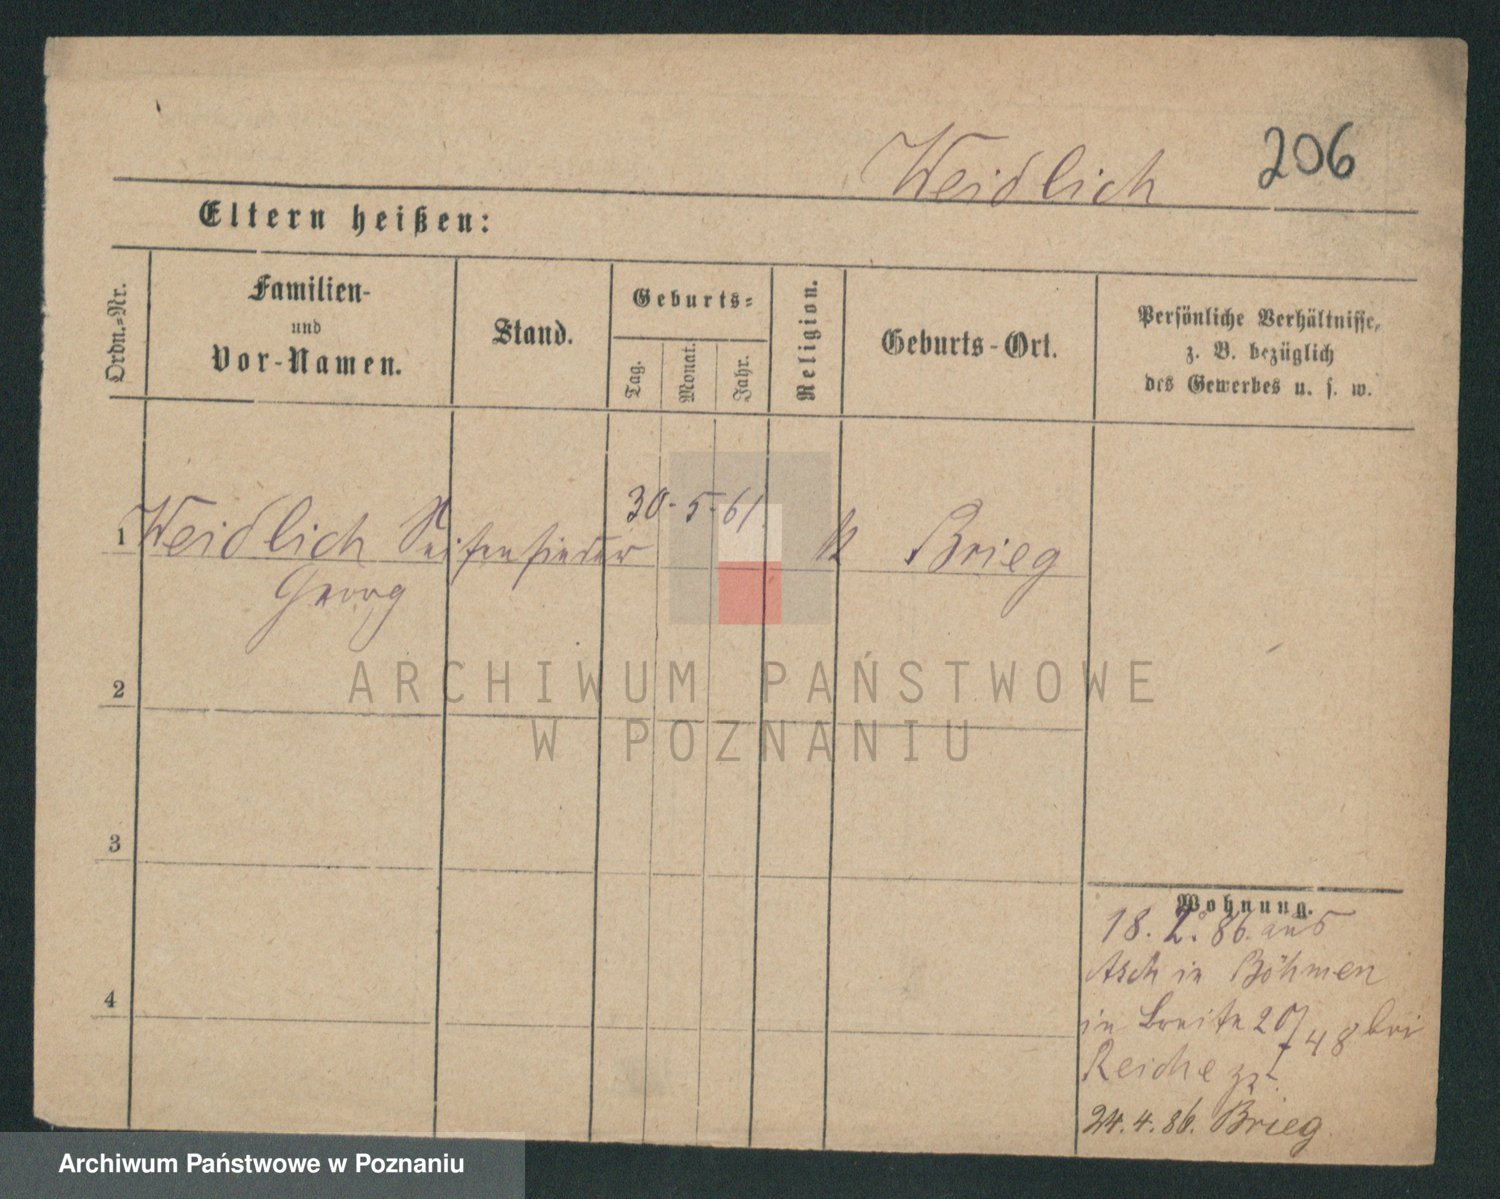 Weidlich 206
Eltern heißen:
Ordn.-Nr.
Familien-
und
Vor-Namen.
Stand.
Geburts-
Tag.
Monat.
Jahr.
Religion.
Geburts-Ort.
Persönliche Verhältnisse,
z. B. bezüglich
des Gewerbes u. s. w.
1 Weidlich Seifensieder 30-5-61. k Brieg
Georg
2
3
4
Wohnung.
18. 2. 86. aus
Asch in Böhmen
in Breite 20/48 bei
Reiche zz.
24. 4. 86. Brieg
ARCHIWUM PAŃSTWOWE
W POZNANIU
Archiwum Państwowe w Poznaniu